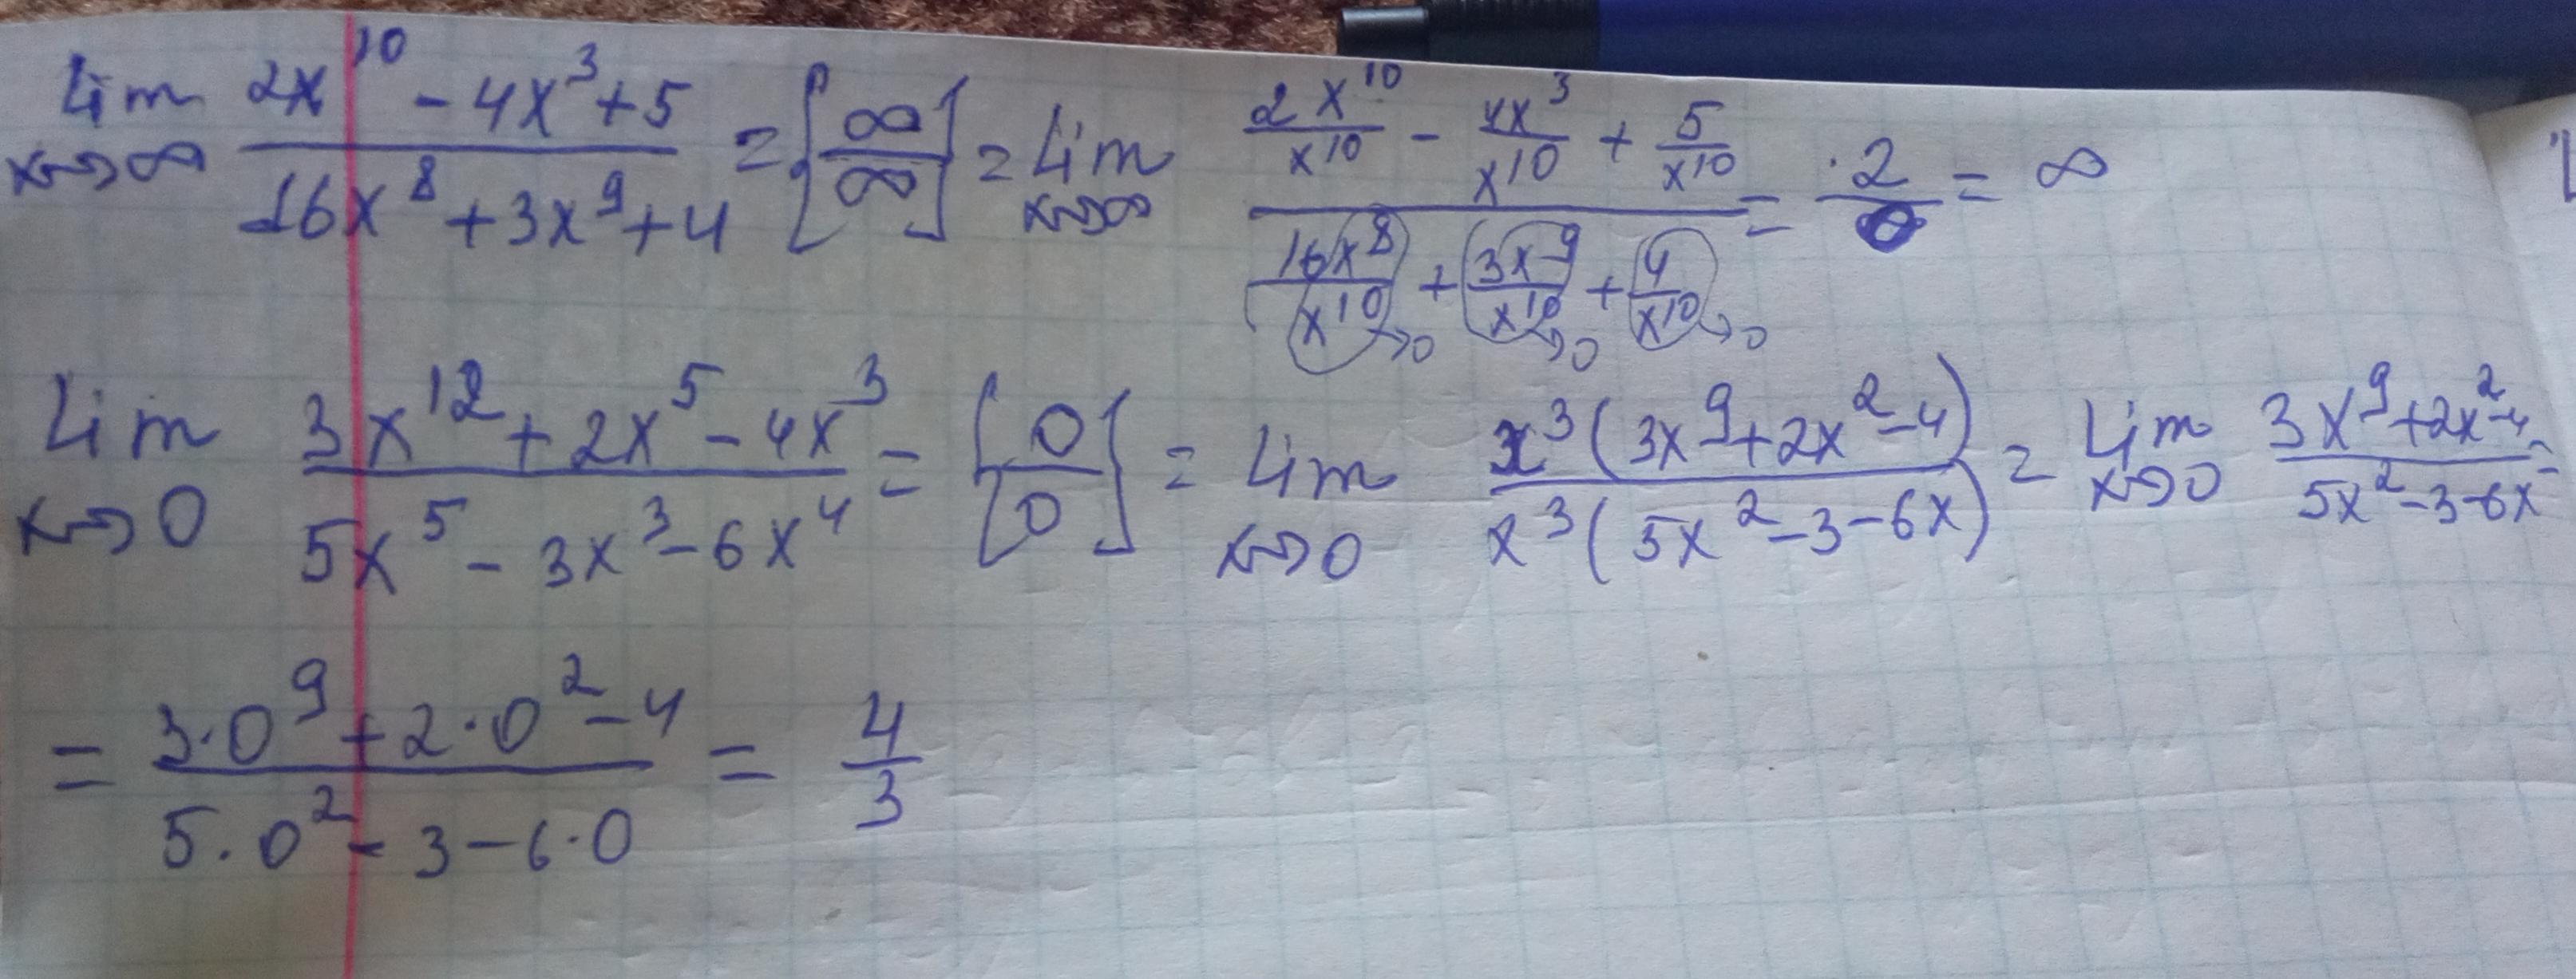 lim x→∞ (2x^10 - 4x^3 + 5)/(16x^8 + 3x^9 + 4) = [∞/∞] = lim x→∞ (2x^10/x^10 - 4x^3/x^10 + 5/x^10)/(16x^8/x^10 →0 + 3x^9/x^10 →0 + 4/x^10 →0) = 2/0 = ∞
lim x→0 (3x^12 + 2x^5 - 4x^3)/(5x^5 - 3x^3 - 6x^4) = [0/0] = lim x→0 x^3(3x^9 + 2x^2 - 4)/x^3(5x^2 - 3 - 6x) = lim x→0 (3x^9 + 2x^2 - 4)/(5x^2 - 3 - 6x) =
= (3·0^9 + 2·0^2 - 4)/(5·0^2 - 3 - 6·0) = 4/3